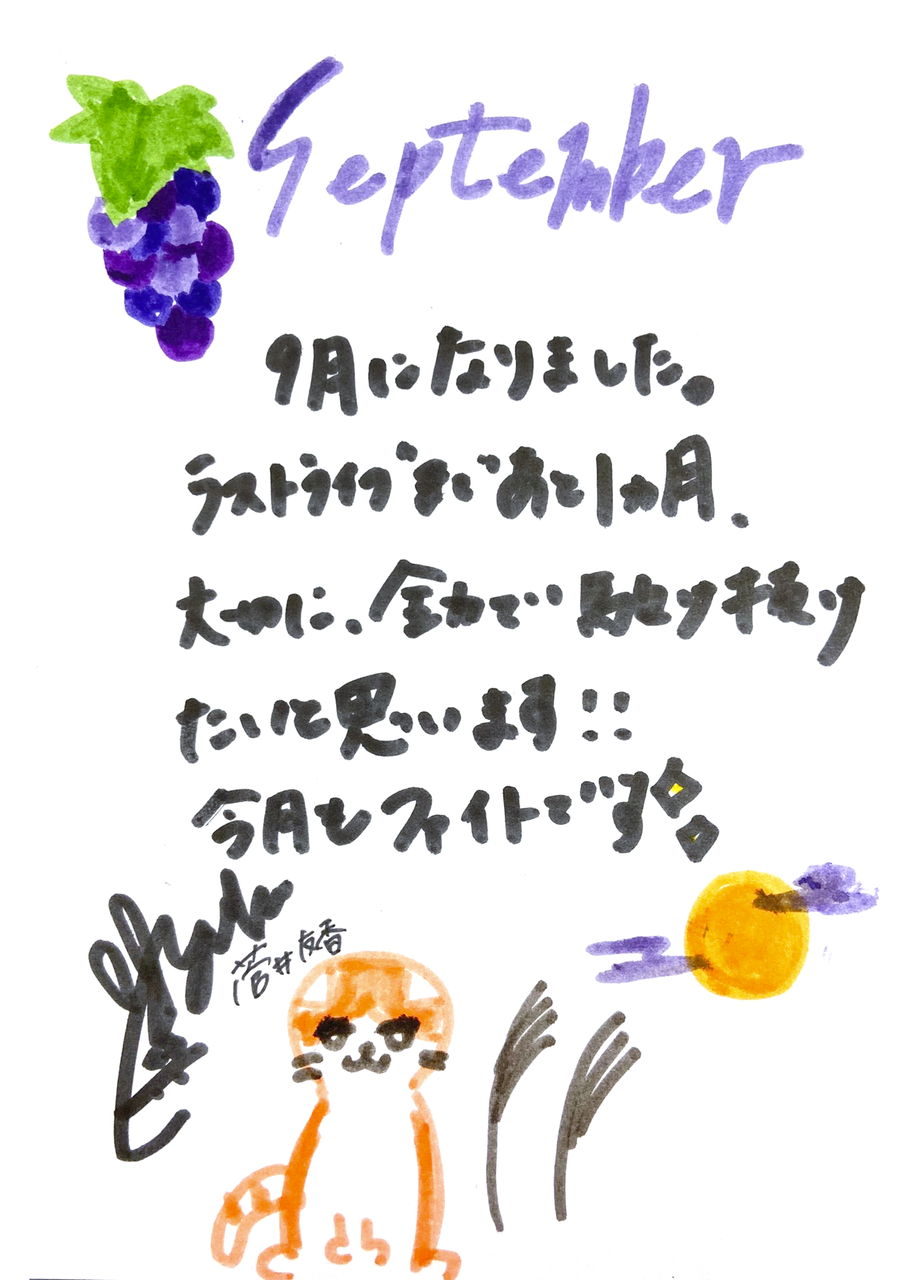 September
9月になりました。
ラストライブまであと1ヵ月、
大切に、全力で駆け抜け
たいと思います!!
今月もファイトです
筒井友香
とら